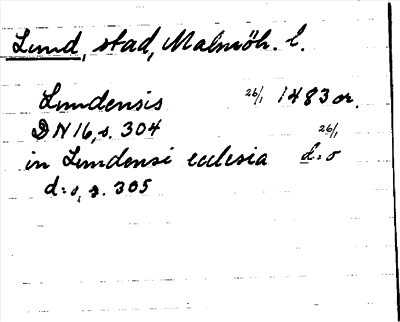 Lund, stad, Malmöh. l.
Lundensis 26/1 1483 or.
DN 16, s. 304
in Lundensi ecclesia 26/1 d:o
d:o, s. 305